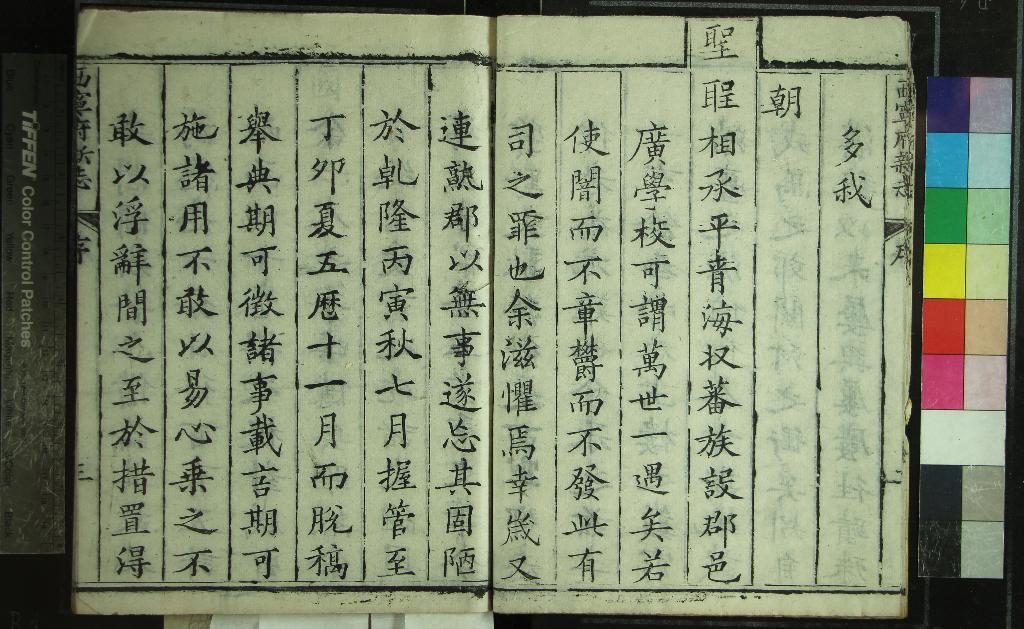 多我
朝
聖聖相承平青海収蕃族設郡邑
廣學校可謂萬世一遇矣若
使闇而不章欝而不發此有
司之罪也余滋懼焉幸歲又
連熟郡以無事遂忘其固陋
於乹隆丙寅秋七月握管至
丁卯夏五曆十一月而脫稿
舉典期可徵諸事載言期可
施諸用不敢以易心乗之不
敢以浮辭間之至於措置得
西寧府新志
序
三
西寧府新志
序
TIFFEN Color Control Patches